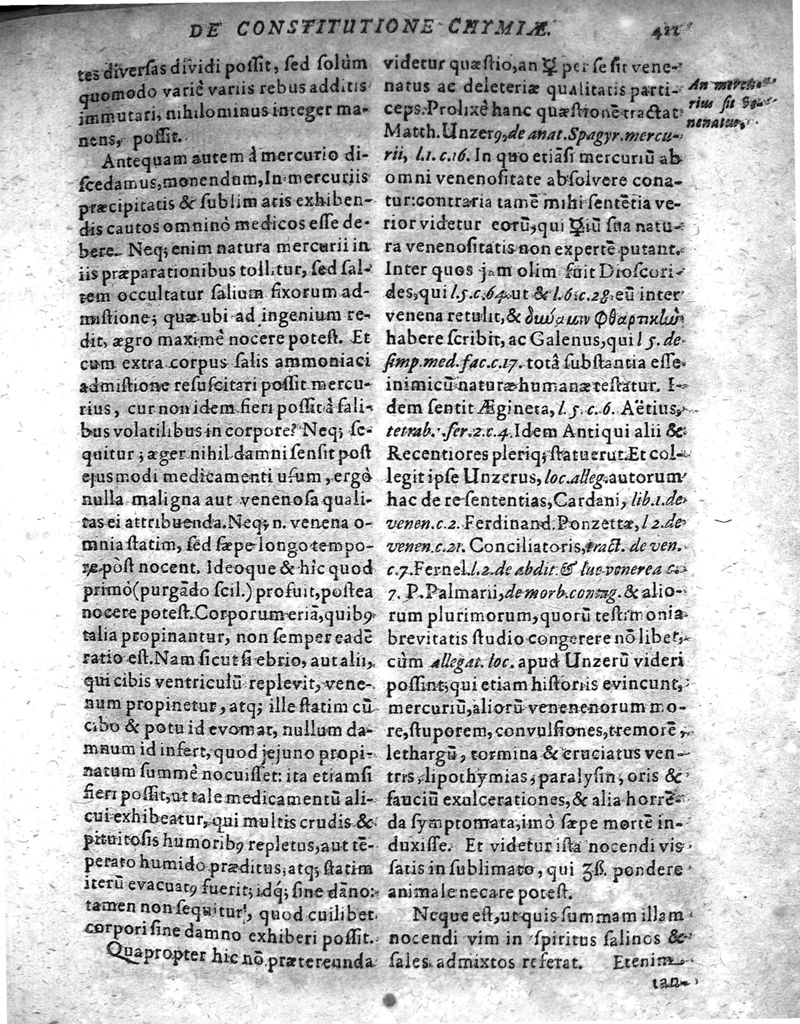 DE CONSTITUTIONE CHYMIÆ.
tes diversas dividi possit, sed solùm
quomodo variè variis rebus additis
immutari, nihilominus integer ma-
nens, possit.
Antequam autem à mercurio di-
scedamus, monendum, In mercuriis
præcipitatis & sublimatis exhiben-
dis cautos omninò medicos esse de-
bere. Neq; enim natura mercurii in
iis præparationibus tollitur, sed sal-
tem occultatur salium fixorum ad-
mistione; quæ ubi ad ingenium re-
dit, ægro maximè nocere potest. Et
cum extra corpus salis ammoniaci
admistione resuscitari possit mercu-
rius, cur non idem fieri possit à sali-
bus volatilibus in corpore? Neq; se-
quitur; æger nihil damni sensit post
ejusmodi medicamenti usum, ergò
nulla maligna aut venenosa quali-
tas ei attribuenda. Neq; n. venena o-
mnia statim, sed sæpe longo tempo-
re pòst nocent. Ideoque & hic quod
primò (purgãdo scil.) profuit, postea
nocere potest. Corporum etiã, quibꝰ
talia propinantur, non semper eadẽ
ratio est. Nam sicut si ebrio, aut alii,
qui cibis ventriculũ replevit, vene-
num propinetur, atq; ille statim cũ
cibo & potu id evomat, nullum da-
mnum id infert, quod jejuno propi-
natum summè nocuisset: ita etiamsi
fieri possit, ut tale medicamentũ ali-
cui exhibeatur, qui multis crudis &
pituitosis humoribꝰ repletus, aut tẽ-
perato humido præditus, atq; statim
iterũ evacuatꝰ fuerit; idq́; sine dãno:
tamen non sequitur, quod cuilibet
corpori sine damno exhiberi possit.
Quapropter hic nõ prætereunda
videtur quæstio, an ☿ per se sit vene-
natus ac deleteriæ qualitatis parti-
ceps. Prolixè hanc quæstionẽ tractat
Matth. Unzerꝰ, de anat. Spagyr. mercu-
rii, l.1.c.16. In quo etiãsi mercuriũ ab
omni venenositate absolvere cona-
tur: contraria tamẽ mihi sentẽtia ve-
rior videtur eorũ, qui ☿iũ sua natu-
ra venenositatis non expertẽ putant.
Inter quos jam olim fuit Dioscori-
des, qui l.5.c.64. ut & l.6.c.28. eũ inter
venena retulit, & δύναμιν φθαρτικὴν
habere scribit, ac Galenus, qui l 5. de
simp. med. fac. c.17. totâ substantia esse
inimicũ naturæ humanæ testatur. I-
dem sentit Ægineta, l.5.c.6. Aëtius,
tetrab. ser.2.c.4. Idem Antiqui alii &
Recentiores pleriq; statuerut. Et col-
legit ipse Unzerus, loc. alleg. autorum
hac de re sententias, Cardani, lib.1. de
venen. c.2. Ferdinand. Ponzettæ, l 2. de
venen. c.21. Conciliatoris, tract. de ven.
c.7. Fernel. l.2. de abdit. & lue venerea c.
7. P. Palmarii, de morb. contag. & alio-
rum plurimorum, quorũ testimonia
brevitatis studio congerere nõ libet,
cùm allegat. loc. apud Unzerũ videri
possint; qui etiam historiis evincunt,
mercuriũ, aliorũ venenenorum mo-
re, stuporem, convulsiones, tremorẽ,
lethargũ, tormina & cruciatus ven-
tris, lipothymias, paralysin, oris &
fauciũ exulcerationes, & alia horrẽ-
da symptomata, imò sæpe mortẽ in-
duxisse. Et videtur ista nocendi vis
satis in sublimato, qui ʒß. pondere
animale necare potest.
Neque est, ut quis summam illam
nocendi vim in spiritus salinos &
sales admixtos referat. Etenim
tan-
An mercu-
rius sit
nenatus.